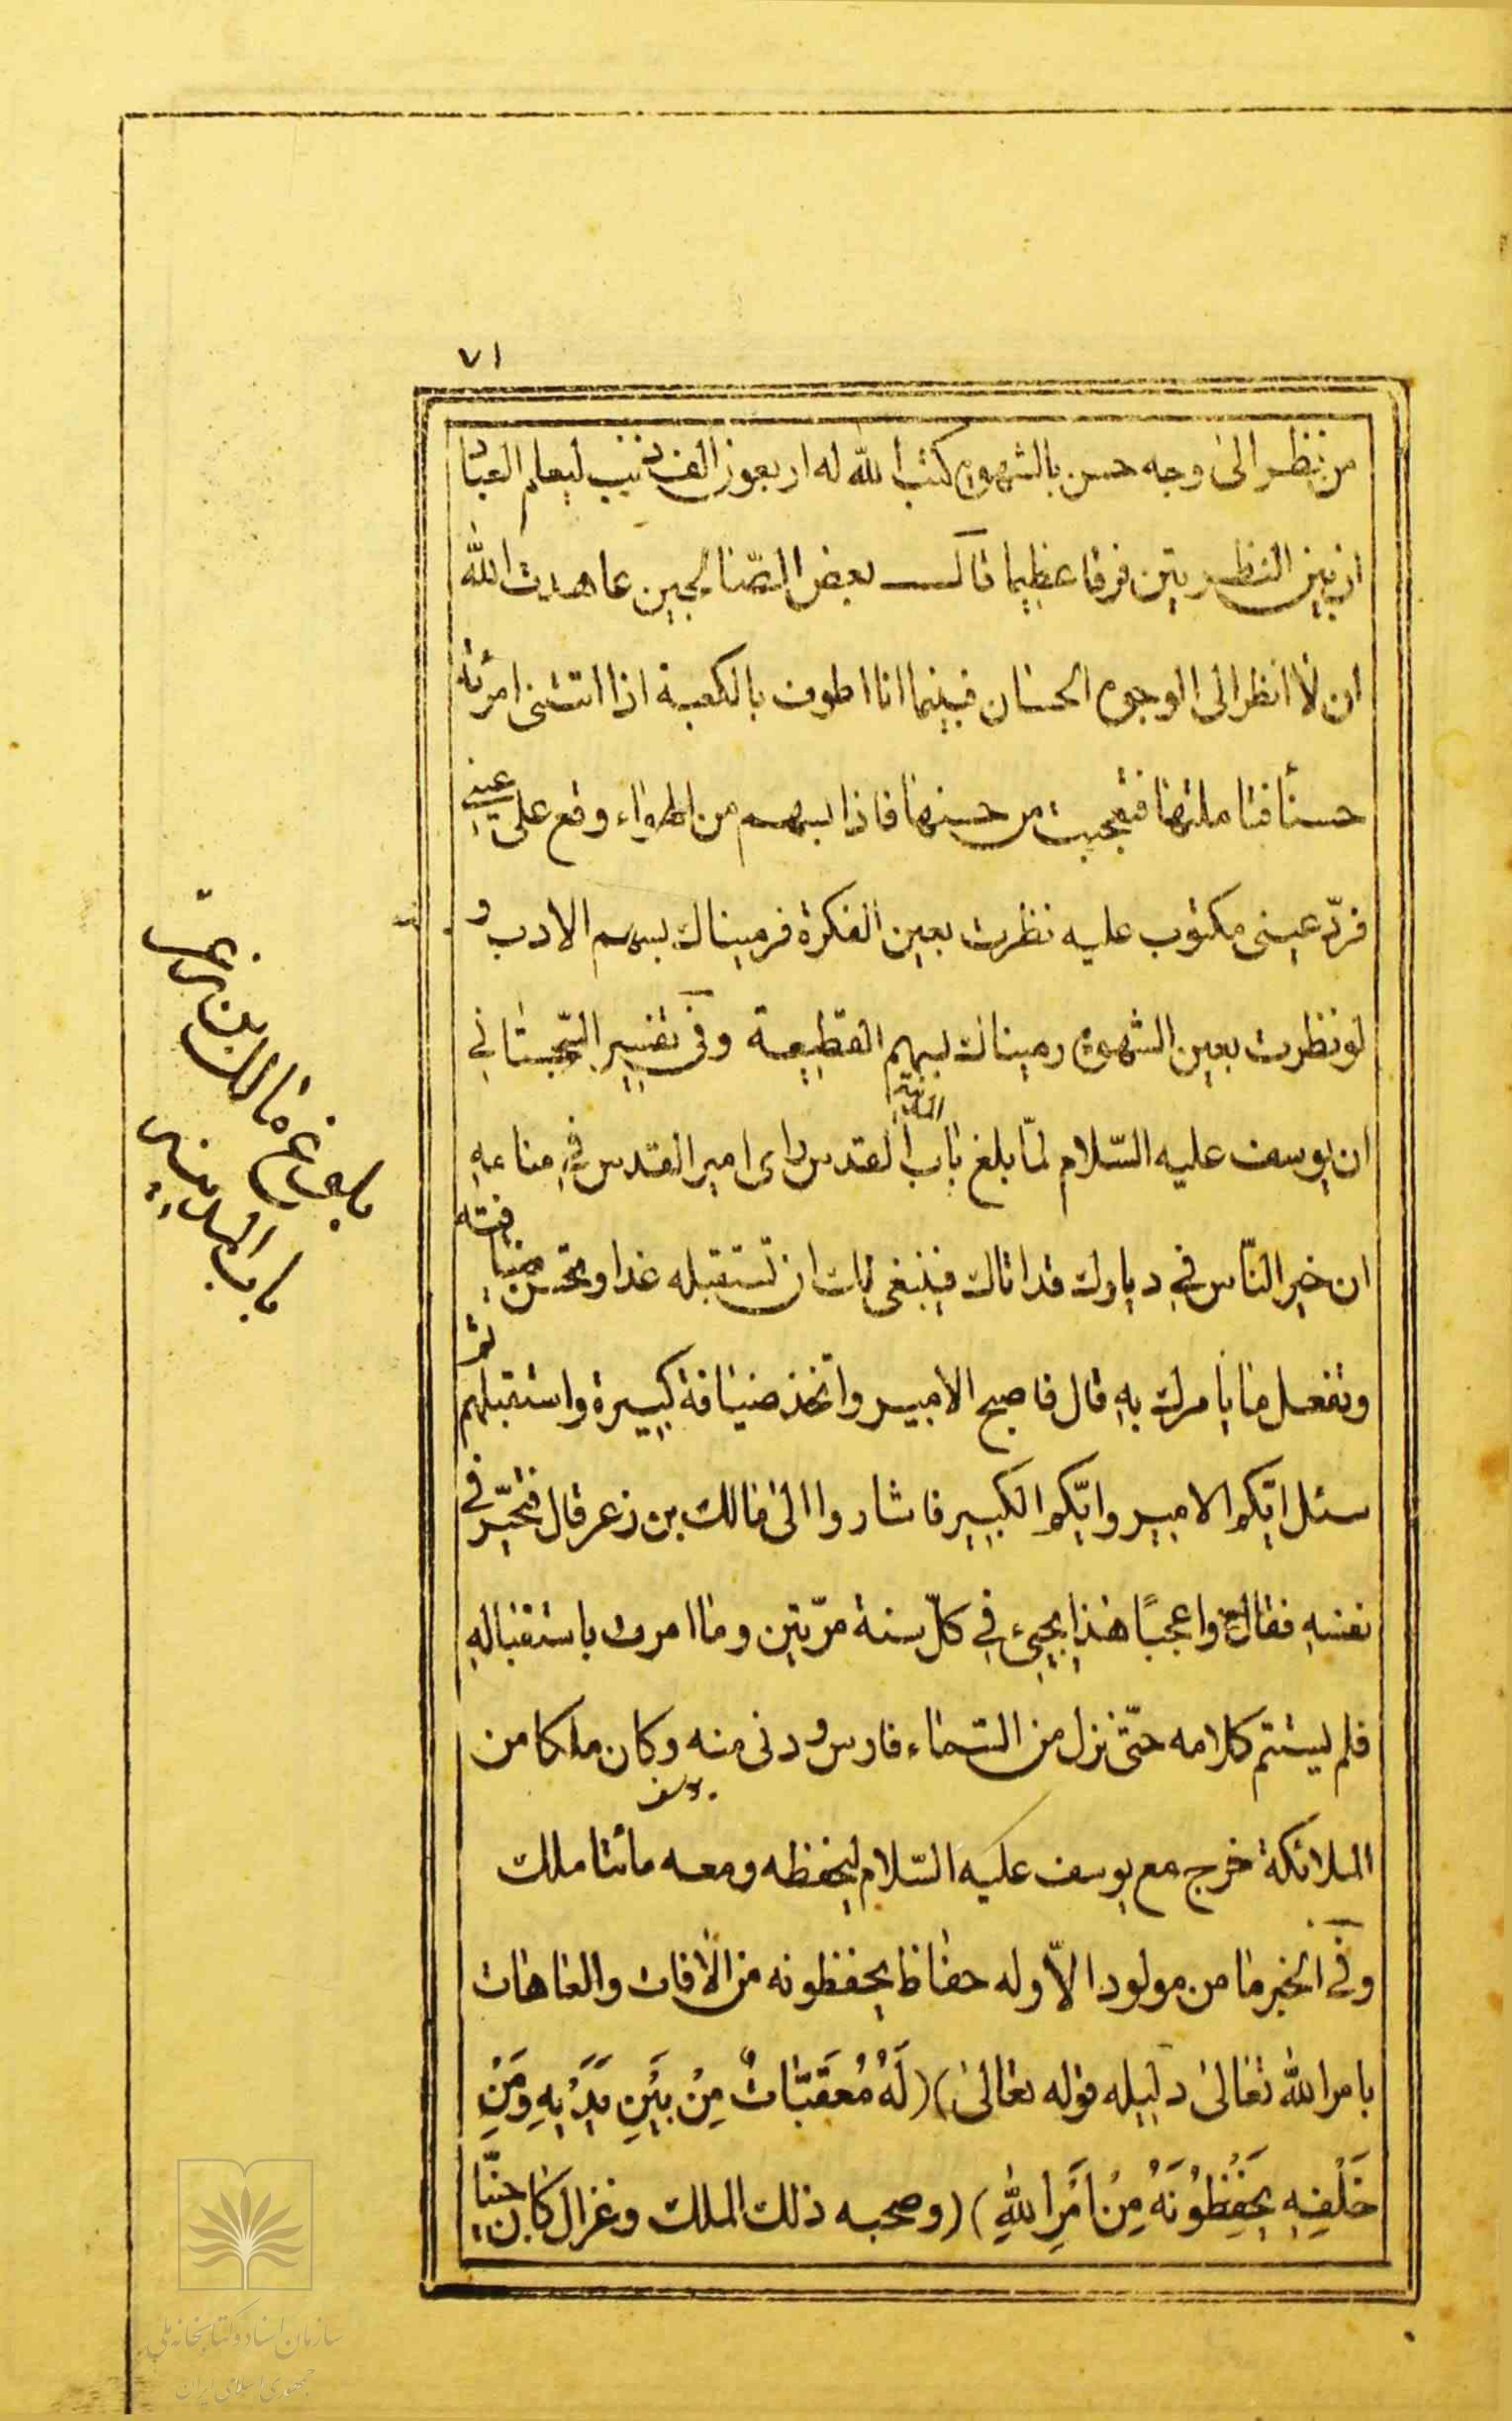 ٧١
من نظر الى وجه حسن بالشهوة كتب الله له اربعون الف ذنب ليعلم العباد
ان بين النظرتين فرقا عظيما قال بعض الصّالحين عاهدت الله
ان لا انظر الى الوجوه الحسان فبينما انا اطوف بالكعبة اذا امرئة
حسنا فتاملتها فتعجبت من حسنها فاذا بسهم من الهواء وقع على عينى
فردّ عينى مكتوب عليه نظرت بعين الفكرة فرميناك بسهم الادب و
لو نظرت بعين الشهوة رميناك بسهم القطيعة وفى تفسير السّجستانى
ان يوسف عليه السّلام لمّا بلغ باب القدس راى امير القدس فى منامه
ان خير النّاس فى ديارك قد اتاك فينبغى لك ان تستقبله غدا وتحسن ضيافته
وتفعل ما يامرك به قال فاصبح الامير واتخذ ضيافة كبيرة واستقبلهم ثم
سئل ايّكم الامير وايّكم الكبير فاشاروا الى مالك بن زعر قال فتحيّر فى
نفسه فقال واعجبًا هذا يجىء فى كلّ سنة مرّتين وما امرت باستقباله
فلم يستتم كلامه حتّى نزل من السّماء فارس ودنى منه وكان ملكا من
الملائكة خرج مع يوسف عليه السّلام ليحفظه ومعه مائتا ملك
يوسف
وفى الخبر ما من مولود الاّ وله حفاظ يحفظونه من الافات والعاهات
بامر الله تعالى دليله قوله تعالى (لَهُ مُعَقِّبَاتٌ مِنْ بَيْنِ يَدَيْهِ وَمِنْ
خَلْفِهِ يَحْفَظُونَهُ مِنْ اَمْرِ اللهِ) (وصحبه ذلك الملك وغزال كان جنيّا
بلوغ مالك بن زعر
باب المدينه
سازمان اسناد و کتابخانه ملی
جمهوری اسلامی ایران